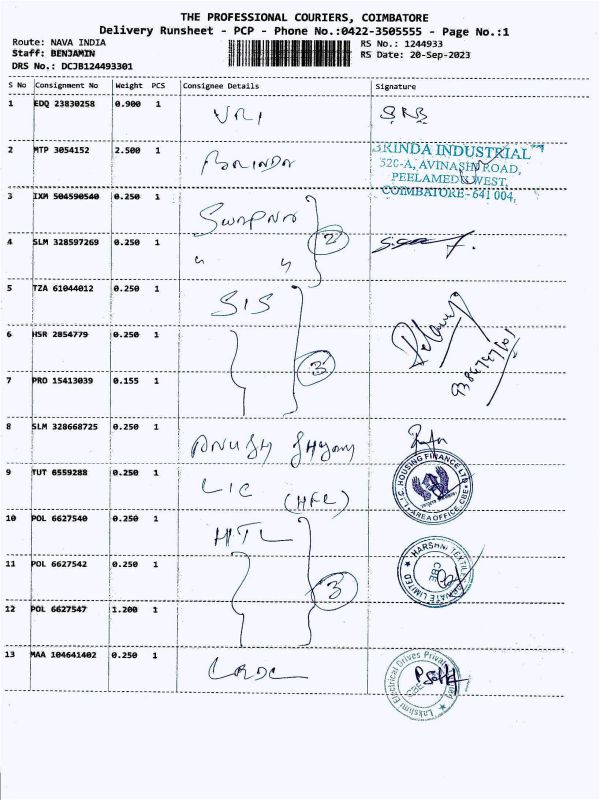 THE PROFESSIONAL COURIERS, COIMBATORE
Delivery Runsheet - PCP - Phone No.:0422-3505555 - Page No.:1
Route: NAVA INDIA RS No.: 1244933
Staff: BENJAMIN RS Date: 20-Sep-2023
DRS No.: DCJB124493301
S No Consignment No Weight PCS Consignee Details Signature
1 EDQ 23830258 0.900 1 VRI SRB
2 MTP 3054152 2.500 1 BRINDA
BRINDA INDUSTRIAL
520-A, AVINASHI ROAD,
PEELAMEDU WEST,
COIMBATORE - 641 004,
3 IXM 504590540 0.250 1 Swapna
2
4 SLM 328597269 0.250 1 " "
5 TZA 61044012 0.250 1 SIS
6 HSR 2854779 0.250 1
3
7 PRO 15413039 0.155 1
8 SLM 328668725 0.250 1 ANUSH Shyam
9 TUT 6559288 0.250 1 LIC (HFL)
L.I.C. HOUSING FINANCE LTD
AREA OFFICE, CBE
10 POL 6627540 0.250 1 HTL
11 POL 6627542 0.250 1
HARSHNI TEXTILE PRIVATE LIMITED
CBE
3
12 POL 6627547 1.200 1
13 MAA 104641402 0.250 1 LRDC
Lakshmi Electrical Drives Private Limited
CBE